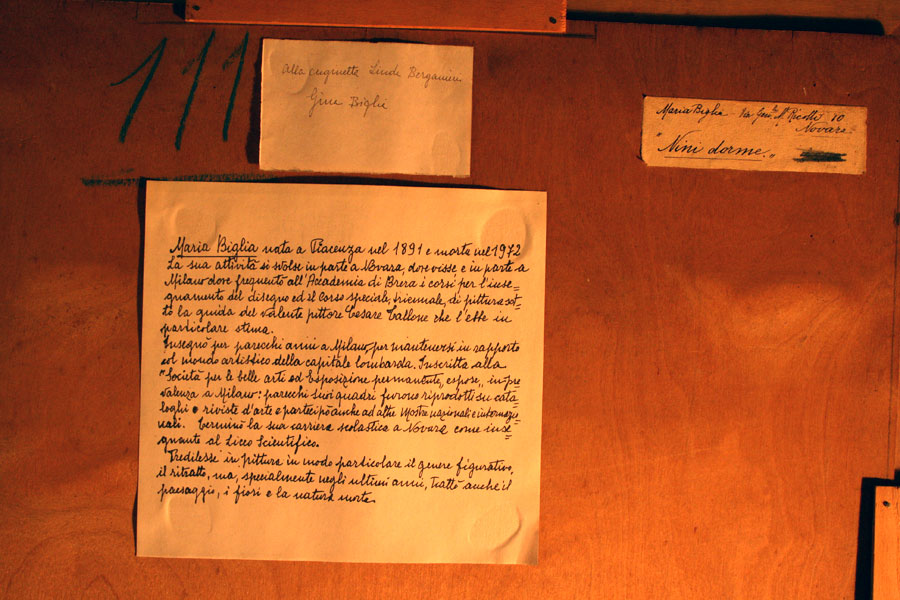 111
Alla cuginetta Linda Bergamini
Gina Biglia
Maria Biglia Via Gen. P. Ricotti 10
Novara
"Nini dorme„
Maria Biglia nata a Piacenza nel 1891 e morta nel 1972
La sua attività si svolse in parte a Novara, dove visse, e in parte a
Milano dove frequentò all'Accademia di Brera i corsi per l'inse=
gnamento del disegno ed il Corso speciale, triennale, di pittura sot=
to la guida del valente pittore Cesare Tallone che l'ebbe in
particolare stima.
Insegnò per parecchi anni a Milano, per mantenersi in rapporto
col mondo artistico della capitale lombarda. Inscritta alla
"Società per le belle arti ed Esposizione permanente„ espose in pre=
valenza a Milano: parecchi suoi quadri furono riprodotti su cata=
loghi e riviste d'arte e partecipò anche ad altre Mostre nazionali e internazio=
nali. Terminò la sua carriera scolastica a Novara come inse=
gnante al Liceo Scientifico.
Predilesse in pittura in modo particolare il genere figurativo,
il ritratto, ma, specialmente negli ultimi anni, trattò anche il
paesaggio, i fiori e la natura morta.